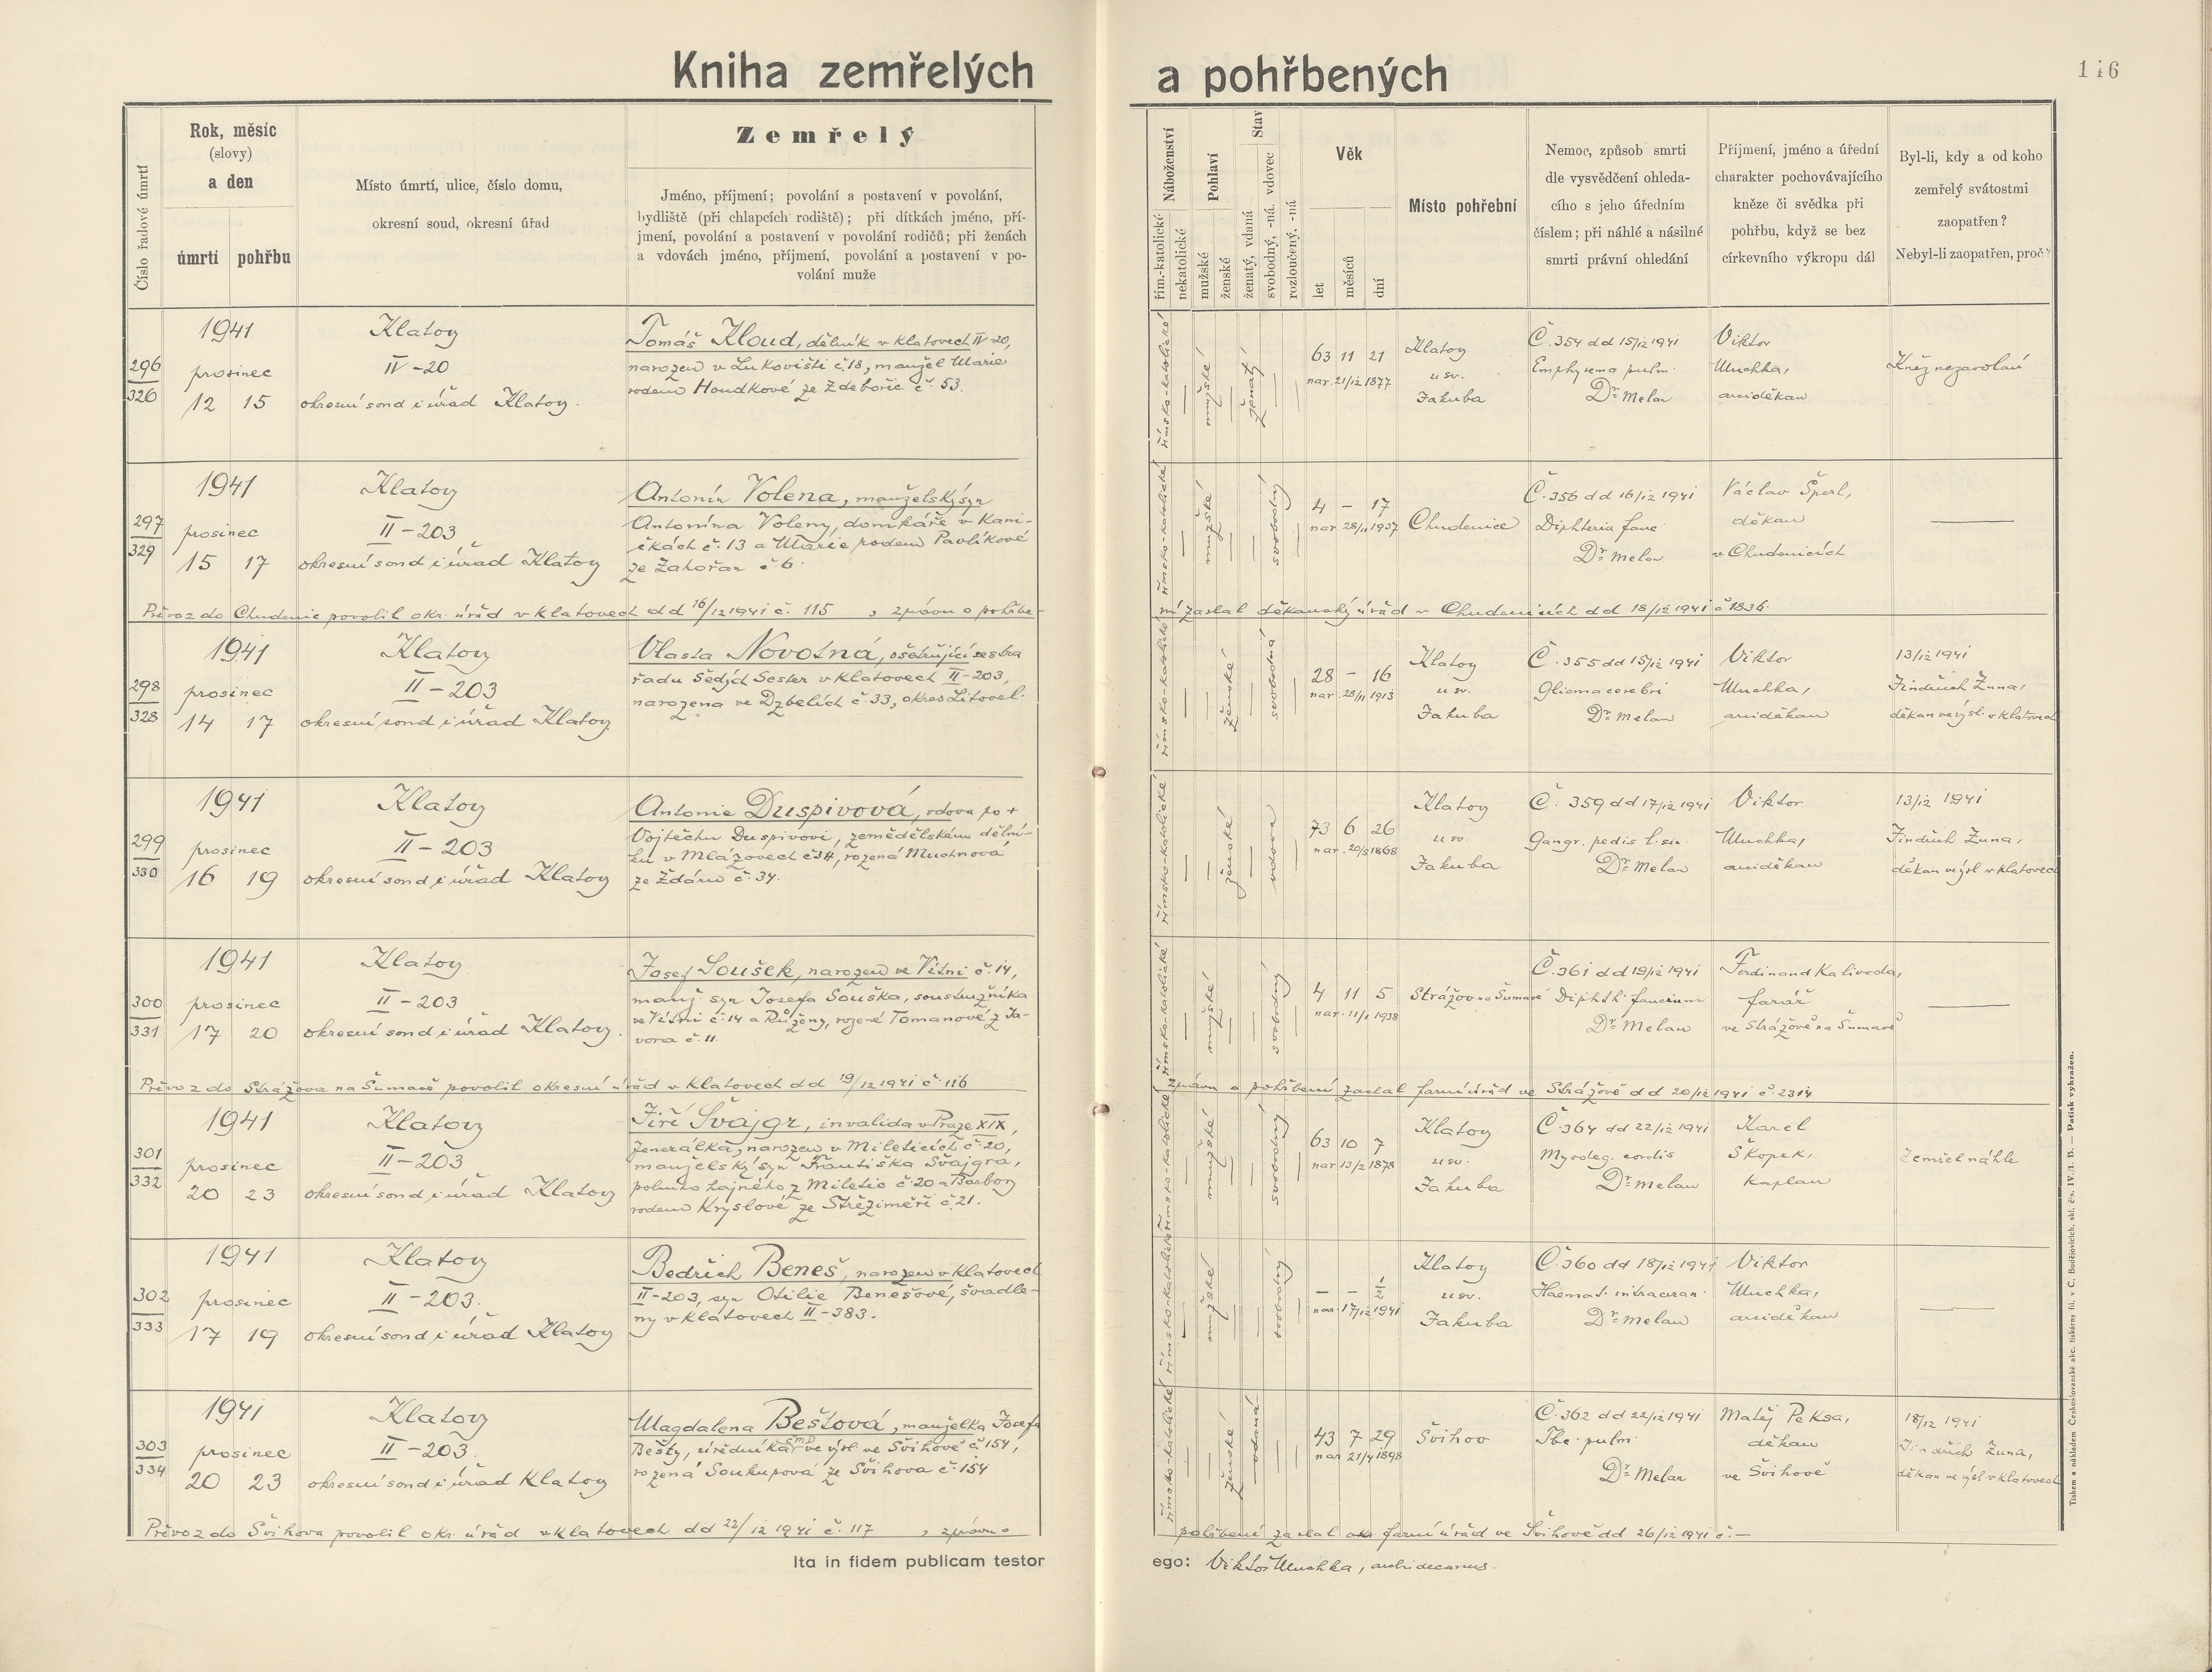 Kniha zemřelých a pohřbených
116
Číslo řadové úmrtí
Rok, měsíc
(slovy)
a den
úmrtí pohřbu
Místo úmrtí, ulice, číslo domu,
okresní soud, okresní úřad
Zemřelý
Jméno, příjmení; povolání a postavení v povolání,
bydliště (při chlapcích rodiště); při dítkách jméno, pří-
jmení, povolání a postavení v povolání rodičů; při ženách
a vdovách jméno, příjmení, povolání a postavení v po-
volání muže
Náboženství
řím.-katolické
nekatolické
Pohlaví
mužské
ženské
Stav
ženatý, vdaná
svobodný, -ná. vdovec
rozloučený, -ná
Věk
let
měsíců
dní
Místo pohřební
Nemoc, způsob smrti
dle vysvědčení ohleda-
cího s jeho úředním
číslem; při náhlé a násilné
smrti právní ohledání
Příjmení, jméno a úřední
charakter pochovávajícího
kněze či svědka při
pohřbu, když se bez
církevního výkropu dál
Byl-li, kdy a od koho
zemřelý svátostmi
zaopatřen?
Nebyl-li zaopatřen, proč?
296
326
1941
prosinec
12 15
Klatovy
IV-20
okresní soud i úřad Klatovy.
Tomáš Kloud, dělník v Klatovech IV-20,
narozen v Lukovišti č.18, manžel Marie
rodem Houdkové ze Zdebořic č. 53.
římsko-katolické
—
mužské
—
ženatý
—
63 11 21
nar. 21/12 1877
Klatovy
u sv.
Jakuba
Č. 354 dd 15/12 1941
Emphysema pulm.
Dr. Melan
Viktor
Muchka,
arciděkan
Kněz nezavolán
297
329
1941
prosinec
15 17
Klatovy
II-203
okresní soud i úřad Klatovy
Antonín Volena, manželský syn
Antonína Voleny, domkáře v Kani-
čkách č. 13 a Marie rodem Pavlíkové
ze Zahořan č 6.
římsko-katolické
—
mužské
—
svobodný
—
4 - 17
nar 28/11 1937
Chudenice
Č. 356 dd 16/12 1941
Diphteria fauc
Dr. Melan
Václav Šperl,
děkan
v Chudenicích
—
Převoz do Chudenic povolil okr. úřad v Klatovech dd 16/12 1941 č. 115 , zprávu o pohřbe-
ní zaslal děkanský úřad v Chudenicích dd 18/12 1941 č 1836.
298
328
1941
prosinec
14 17
Klatovy
II-203
okresní soud i úřad Klatovy
Vlasta Novotná, ošetřující sestra
řadu Šedých Sester v Klatovech II-203,
narozena ve Dzbelích č. 33, okres Litovel.
římsko-katolické
—
ženské
—
svobodná
—
28 - 16
nar. 28/11 1913
Klatovy
u sv.
Jakuba
Č. 355 dd 15/12 1941
Glioma cerebri
Dr. Melan
Viktor
Muchka,
arciděkan
13/12 1941
Jindřich Žuna,
děkan ve výsl. v Klatovech
299
330
1941
prosinec
16 19
Klatovy
II-203
okresní soud i úřad Klatovy
Antonie Duspivová, vdova po +
Vojtěchu Duspivovi, zemědělském dělní-
ku v Mlázovech č 34, rozená Muchnová
ze Ždánu č. 34.
římsko-katolické
—
ženské
—
vdova
—
73 6 26
nar. 20/5 1868
Klatovy
u sv.
Jakuba
Č. 359 dd 17/12 1941
Gangr. pedis l. sin.
Dr. Melan
Viktor
Muchka,
arciděkan
13/12 1941
Jindřich Žuna,
děkan ve výsl v Klatovech
300
331
1941
prosinec
17 20
Klatovy
II-203
okresní soud i úřad Klatovy.
Josef Soušek, narozen ve Vítni č. 14,
manž syn Josefa Souška, soustružníka
ve Vítni č. 14 a Růženy, rozené Tomanové z Ja-
vora č. 11.
římsko-katolické
—
mužské
—
svobodný
—
4 11 5
nar. 11/1 1938
Strážov na Šumavě
Č. 361 dd 19/12 1941
Diphth. faucium
Dr. Melan
Ferdinand Kalivoda,
farář
ve Strážově na Šumavě
—
Převoz do Strážova na Šumavě povolil okresní úřad v Klatovech dd 19/12 1941 č. 116
Zprávu o pohřbení zaslal farní úřad ve Strážově dd 20/12 1941 č 2314
301
332
1941
prosinec
20 23
Klatovy
II-203
okresní soud i úřad Klatovy
Jiří Švajgr, invalida v Praze XIX,
Jenerálka, narozen v Mileticích č. 20,
manželský syn Františka Švajgra,
polního hajného z Miletic č 20 a Barbory
rodem Kryslové ze Střeziměře č. 21.
římsko-katolické
—
mužské
—
svobodný
—
63 10 7
nar 13/2 1878
Klatovy
u sv.
Jakuba
Č. 364 dd 22/12 1941
Myodeg. cordis
Dr. Melan
Karel
Škopek,
kaplan
Zemřel náhle
302
333
1941
prosinec
17 19
Klatovy
II-203.
okresní soud i úřad Klatovy
Bedřich Beneš, narozen v Klatovech
II-203, syn Otilie Benešové, švadle-
ny v Klatovech II-383.
římsko-katolické
—
mužské
—
svobodný
—
- - 1/2
nar. 17/12 1941
Klatovy
u sv.
Jakuba
Č 360 dd 18/12 1941
Haemat. intracran.
Dr. Melan
Viktor
Muchka,
arciděkan
—
303
334
1941
prosinec
20 23
Klatovy
II-203.
okresní soud i úřad Klatovy
Magdalena Beštová, manželka Josefa
Bešty, úředníka ČMD ve výsl ve Švihově č 154,
rozená Soukupová ze Švihova č. 154
římsko-katolické
—
ženské
vdaná
—
43 7 29
nar 21/4 1898
Švihov
Č. 362 dd 22/12 1941
Tbc. pulm.
Dr. Melan
Matěj Peksa,
děkan
ve Švihově
18/12 1941
Jindřich Žuna,
děkan ve výsl v Klatovech
Převoz do Švihova povolil okr. úřad v Klatovech dd 22/12 1941 č. 117 , zprávu o
pohřbení zaslal farní úřad ve Švihově dd 26/12 1941 č. —
Ita in fidem publicam testor ego: Viktor Muchka, archidecanus.
Tiskem a nákladem Českoslovanské akc. tiskárny fil. v Č. Budějovicích, skl. čís. IV./1. B. — Patisk vyhrazen.